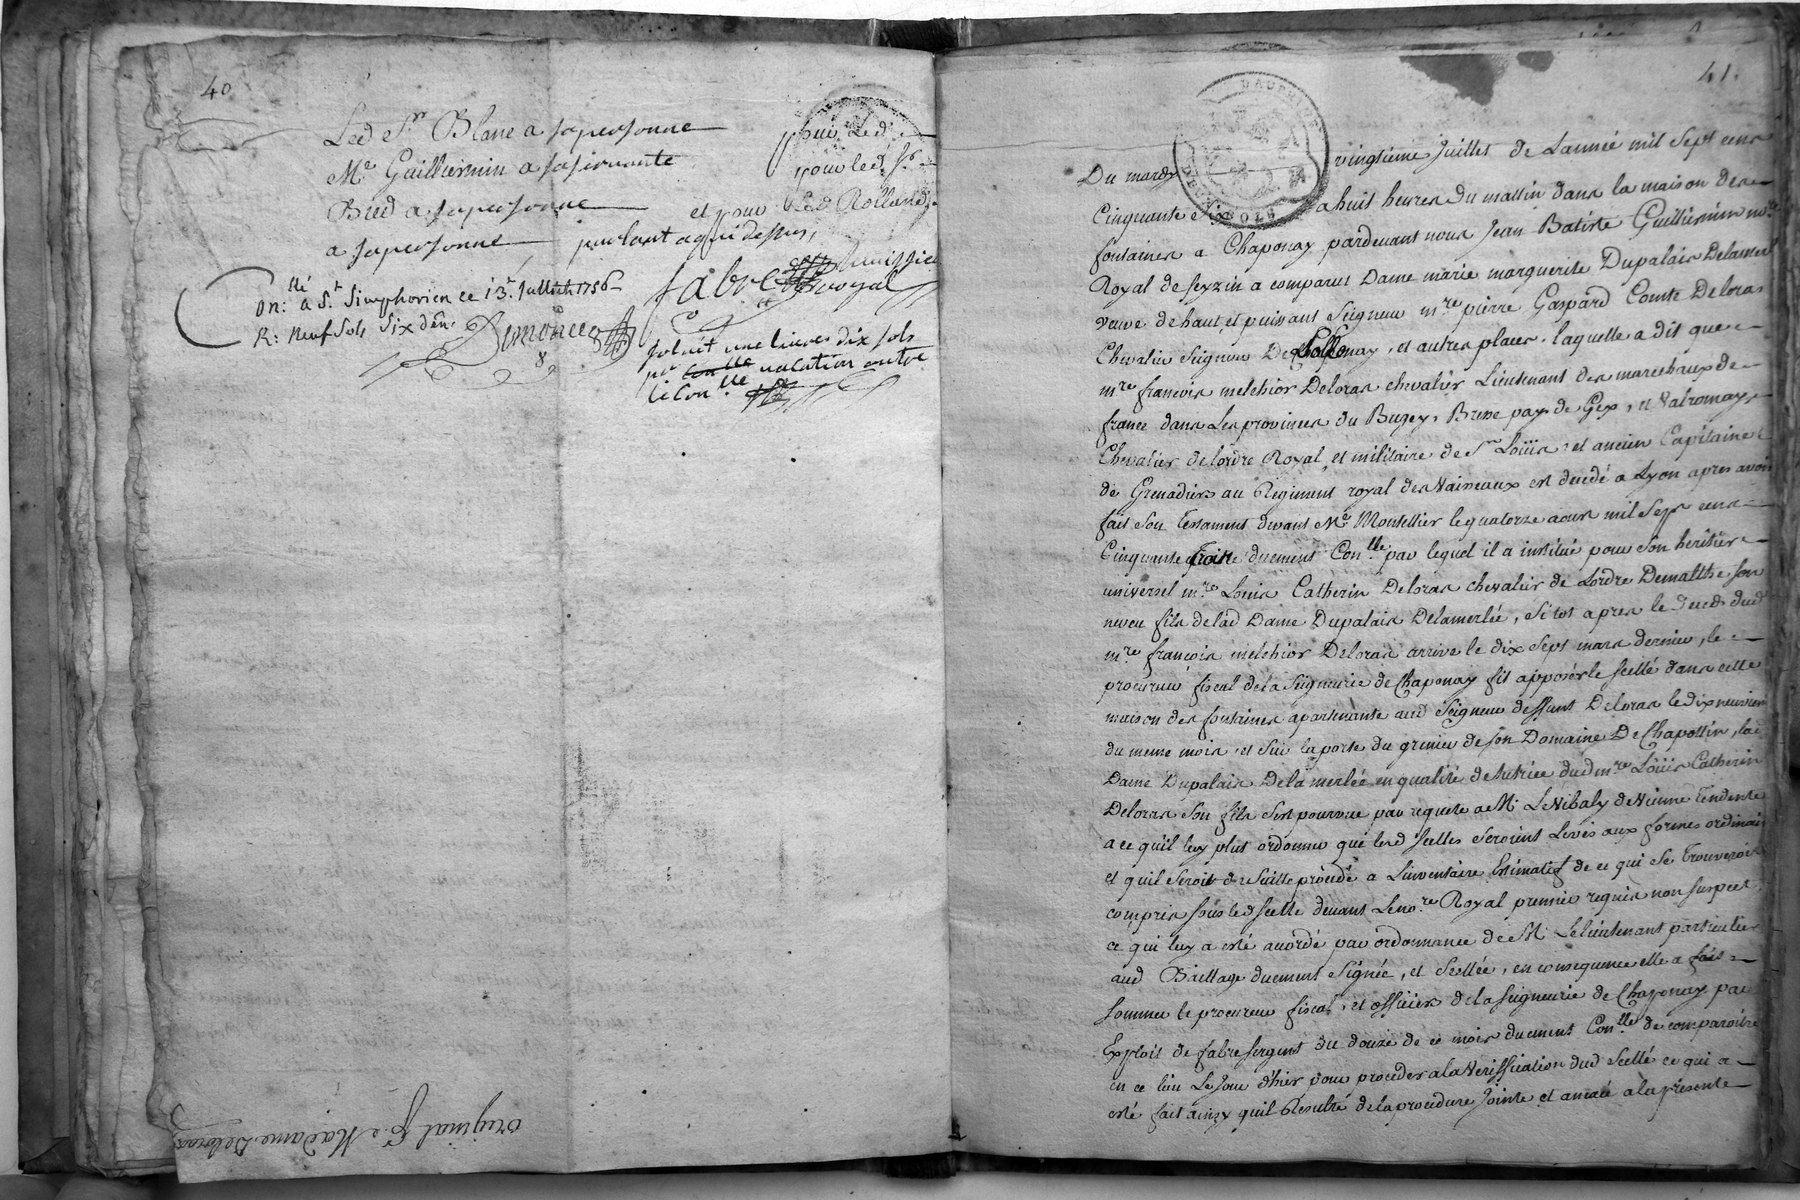 40
Led Sr. Blanc a sa personne
Me Guilliermin a sa servante
Bied a sa personne
a sa personne parlant a qui dessus,
pour led
pour led Sr.
et pour led Rolland,
Fabre huissier
royal
Con:llé a St. Simphorien ce 13e. Juillet 1756
R: neuf sols six den.
Simond
soluit une livre dix sols
pr vacation outre
le Con.lle
original pr. Madame Deloras
41.
DAUPHINE
Du mardy vingtieme juillet de L'année mil sept cens
Cinquante six a huit heures du mattin dans la maison des
fontaines a Chaponay pardevant nous Jean Batiste Guilliermin nore.
Royal de seyzin a comparut Dame marie marguerite Dupalais Delamerlée
veuve de haut et puissant Seigneur mre. pierre Gaspard Comte Deloras
Chevalier Seigneur De et autres places, laquelle a dit que
mre. francois melchior Deloras chevalier Lieutenant des marechaux de
france dans Les provinces du Bugey, Bresse pays de Gex, et Valromay,
Chevalier de lordre Royal, et militaire de St. Loüis, et ancien Capitaine
de Grenadiers au Regiment royal des Vaisseaux est decedé a Lyon apres avoir
fait son Testament devant Me. Montellier le quatorze aoust mil Sept cens
Cinquante trois duement Con.llé par lequel il a institué pour son heritier
universel mre. Louis Catherin Deloras chevalier de Lordre Demalthe, son
neveu fils de lad Dame Dupalais Delamerlée, Si tot apres le deceds dud
mre. françois melchior Deloras arrivé le dix sept mars dernier, le
procureur fiscal de la Seigneurie de Chaponay fit apposér le scellé dans cette
maison des fontaines apartenante aud Seigneur deffunt Deloras le dix neuvieme
du meme mois, et sur la porte du grenier de son Domaine De Chapottin, lad
Dame Dupalais De la merlée en qualité de tutrice dud mre. Loüis Catherin
Deloras son fils s'est pourvue par requete a M. LeVibaly de Vienne tendente
a ce qu'il luy plut ordonner que lesd scellés seroient Levés aux formes ordinaires
et quil seroit de suitte procedé a L'inventaire Estimatif de ce qui se trouveroit
compris sous led scellé devant Le nore. Royal premier requis non suspect,
ce qui luy a esté accordé par ordonnance de M. Le lieutenant particulier
aud Baillage duement Signée, et Scellée, en consequence elle a fait
sommer le procureur fiscal, et officiers de la seigneurie de Chaponay par
Exploit de fabre sergent du douze de ce mois duement Con.llé de comparoitre
en ce lieu Le jour d'hier pour proceder a la Veriffication dud scellé ce qui a
esté fait ainsy qu'il Resulte de la procedure jointe et anexée a la presente